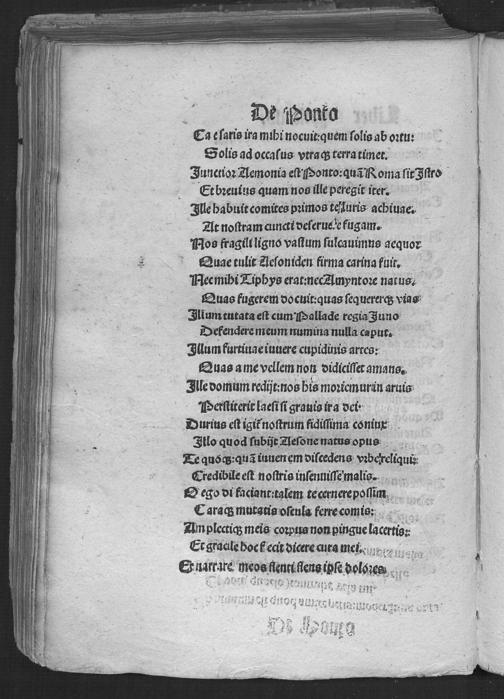 De Ponto
Cæsaris ira mihi nocuit: quem solis ab ortu:
Solis ad occasus vtraqꝫ terra timet.
Junctior Aemonia est Ponto: quã Roma sit Istro
Et breuius quam nos ille peregit iter.
Ille habuit comites primos telluris achiuae.
At nostram cuncti deseruere fugam.
Nos fragili ligno vastum sulcauimus aequor
Quae tulit Aesoniden firma carina fuit.
Nec mihi Tiphys erat: nec Amyntore natus.
Quas fugerem docuit: quas sequererqꝫ vias
Illum tutata est cum Pallade regia Juno
Defendere meum numina nulla caput.
Illum furtiuae iuuere cupidinis artes:
Quas a me vellem non didicisset amans.
Ille domum redijt: nos his moriemur in aruis
Perstiterit laesi si grauis ira dei.
Durius est igit̃ nostrum fidissima coniux
Illo quod subijt Aesone natus opus
Te quoqꝫ: quã iuuenem discedens vrbe reliqui:
Credibile est nostris insenuisse malis.
O ego di faciant: talem te cernere possim
Caraqꝫ mutatis oscula ferre comis:
Amplectiqꝫ meis corpus non pingue lacertis:
Et gracile hoc fecit dicere cura mei.
Et narrare meos flenti flens ipse dolores